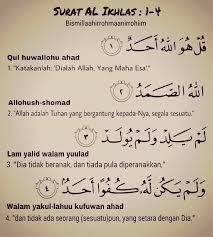 SURAT AL IKHLAS : 1-4
Bismillaahirrohmaanirrohiim
قُلْ هُوَ اللَّهُ أَحَدٌ ١
Qul huwallohu ahad
1. "Katakanlah: 'Dialah Allah, Yang Maha Esa'."
اللَّهُ الصَّمَدُ ٢
Allohush-shomad
2. "Allah adalah Tuhan yang bergantung kepada-Nya, segala sesuatu."
لَمْ يَلِدْ وَلَمْ يُولَدْ ٣
Lam yalid walam yuulad
3. "Dia tidak beranak, dan tiada pula diperanakkan,"
وَلَمْ يَكُن لَّهُ كُفُوًا أَحَدٌ ٤
Walam yakul-lahuu kufuwan ahad
4. "dan tidak ada seorang (sesuatu)pun, yang setara dengan Dia."